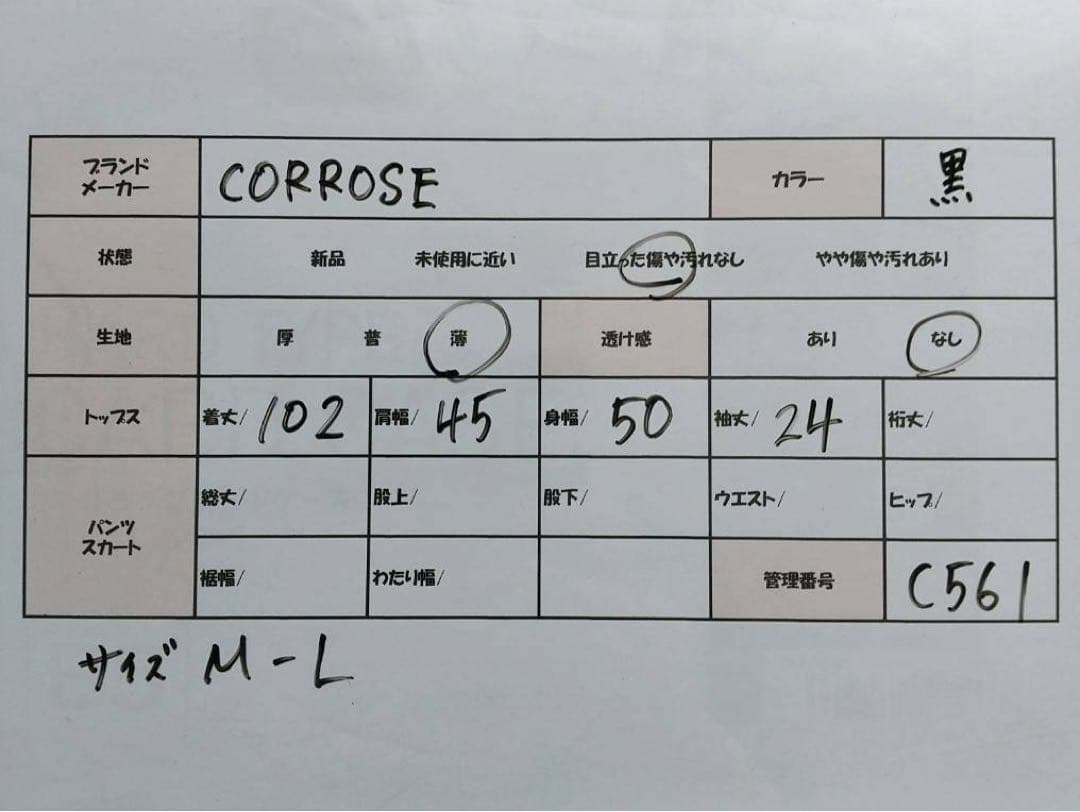 ブランド
メーカー CORROSE カラー 黒
状態 新品 未使用に近い 目立った傷や汚れなし やや傷や汚れあり
生地 厚 普 薄 透け感 あり なし
トップス 着丈/102 肩幅/45 身幅/50 袖丈/24 裄丈/
パンツ
スカート
総丈/ 股上/ 股下/ ウエスト/ ヒップ/
裾幅/ わたり幅/ 管理番号 C561
サイズ M-L